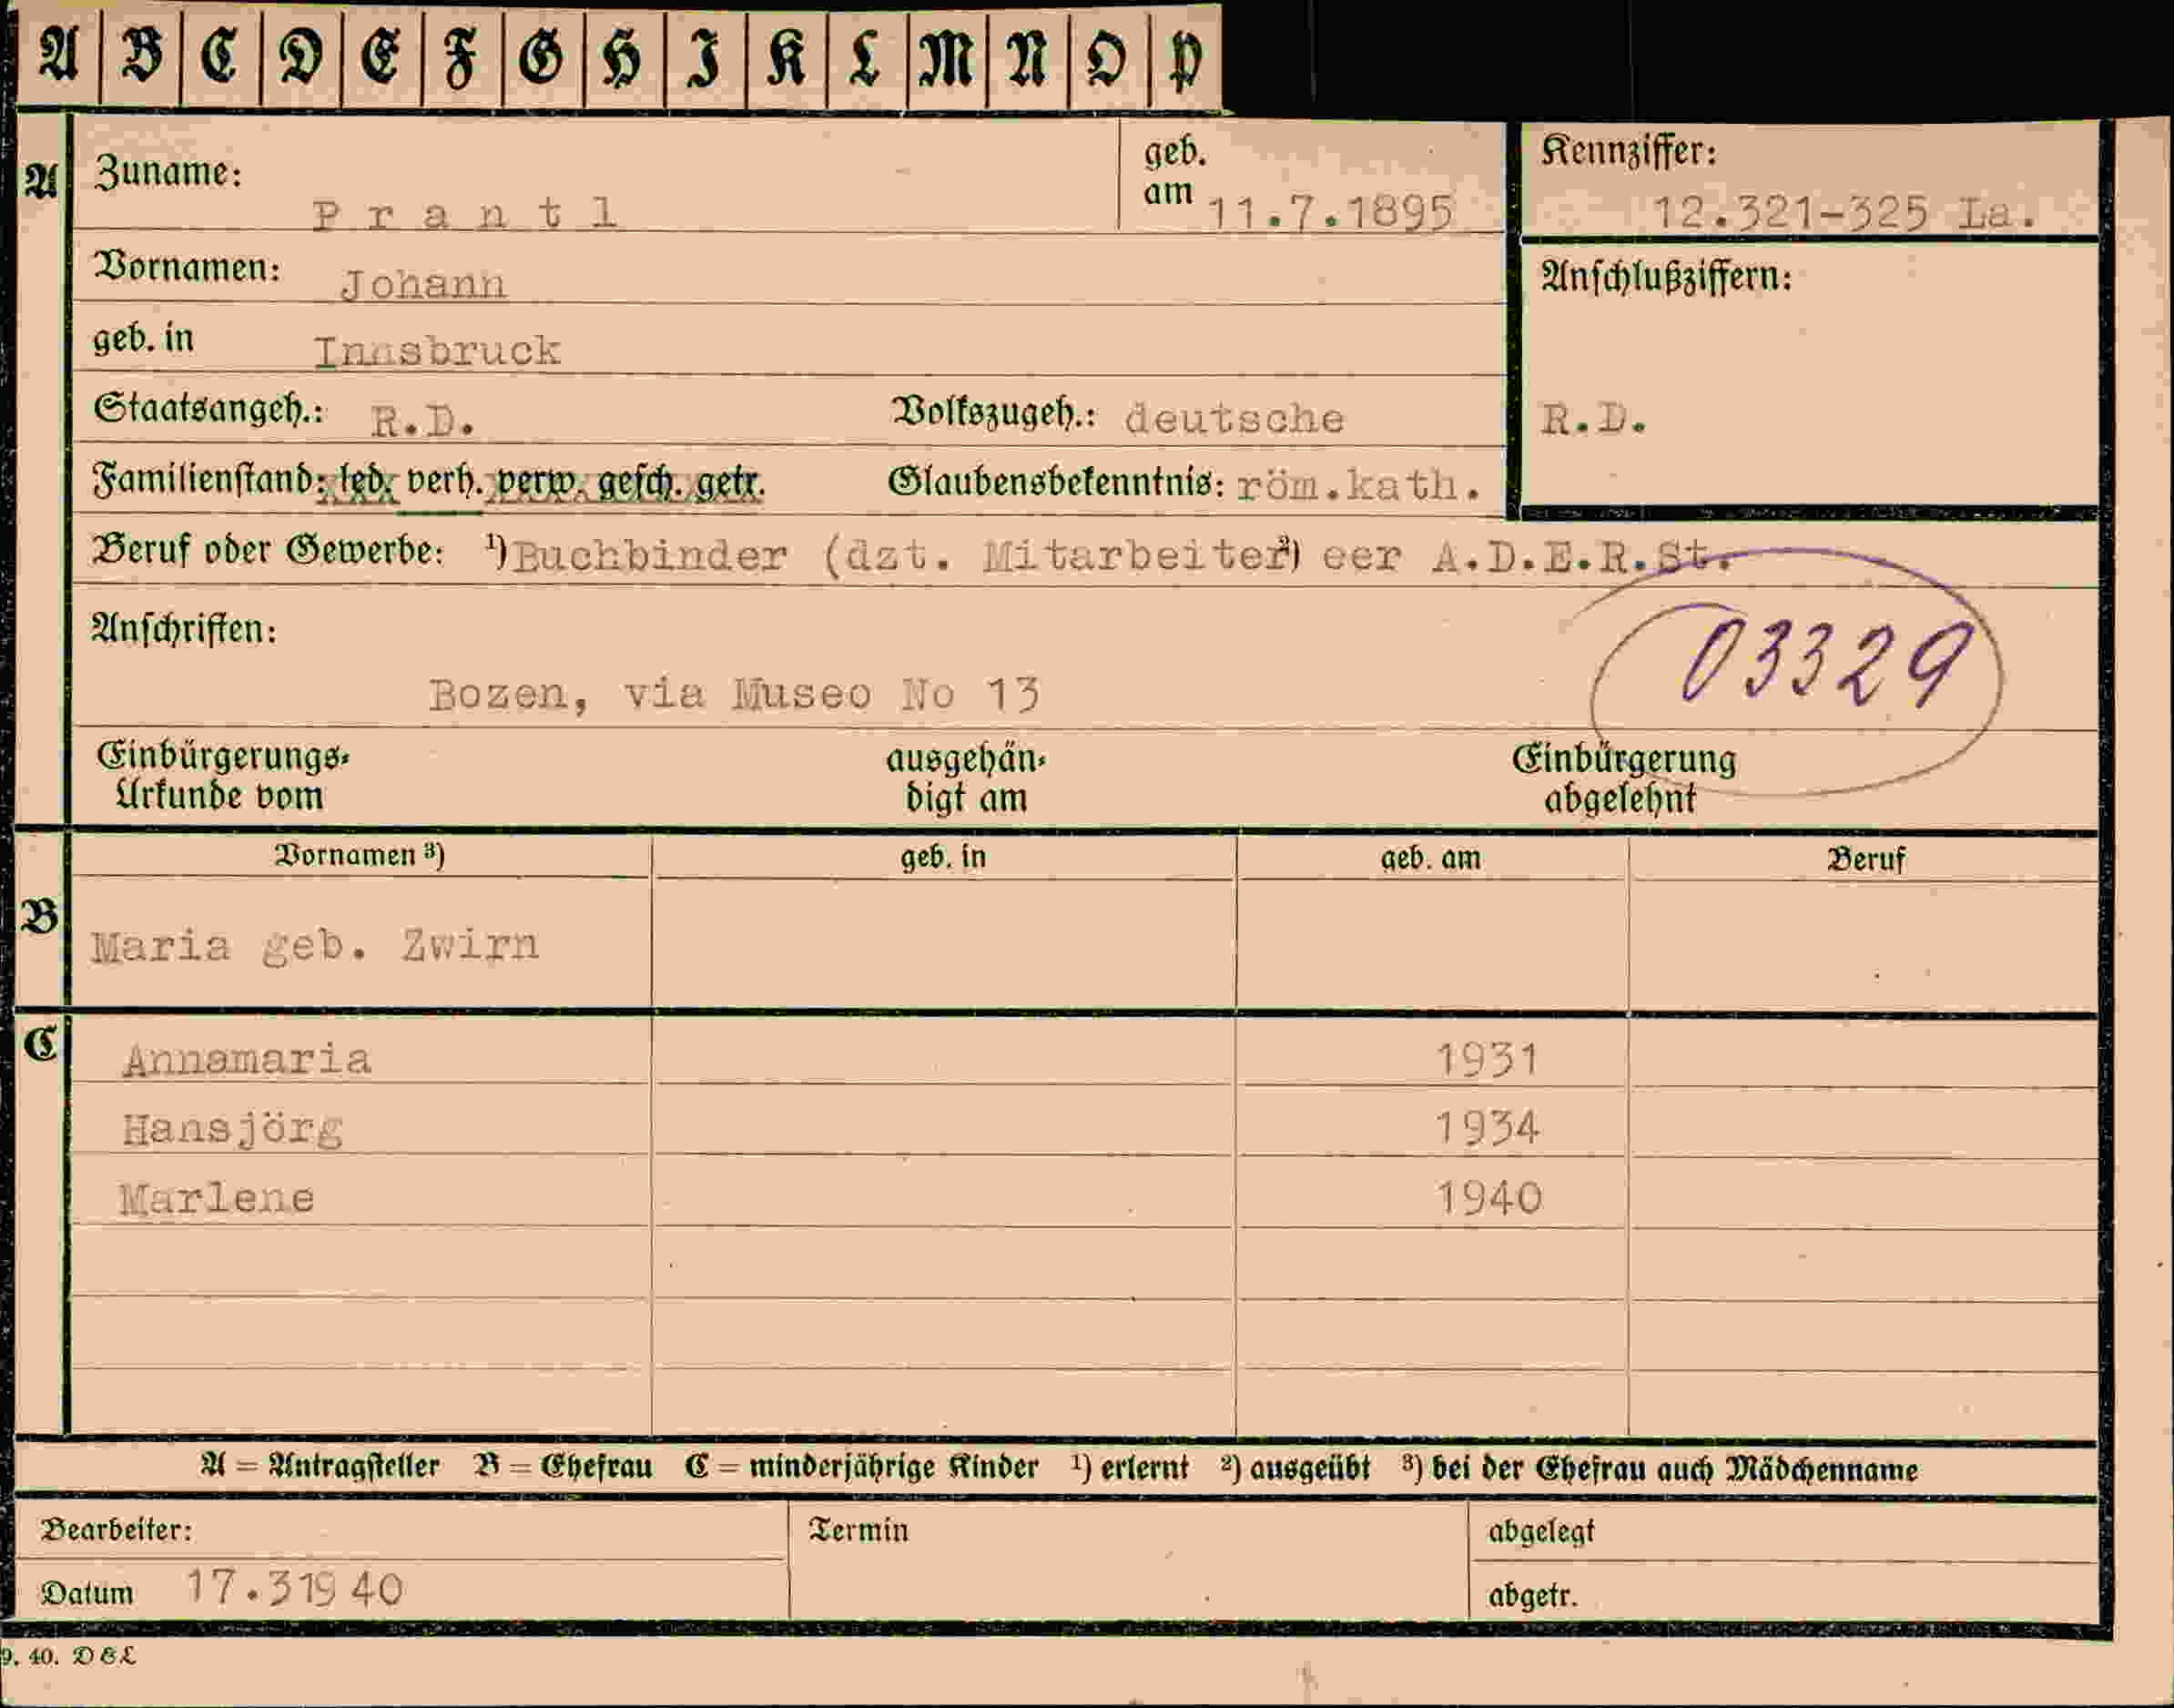 A B C D E F G H I K L M N O P
A Zuname: Prantl geb. am 11.7.1895 Kennziffer: 12.321-325 La.
Vornamen: Johann Anschlußziffern:
geb. in Innsbruck
Staatsangeh.: R.D. Volkszugeh.: deutsche R.D.
Familienstand: led. verh. verw. gesch. getr. Glaubensbekenntnis: röm.kath.
Beruf oder Gewerbe: ¹) Buchbinder (dzt. Mitarbeiter ²) eer A.D.E.R.St.
Anschriften: 03329
Bozen, via Museo No 13
Einbürgerungs- ausgehän- Einbürgerung
Urkunde vom digt am abgelehnt
Vornamen ³) geb. in geb. am Beruf
B Maria geb. Zwirn
C Annamaria 1931
Hansjörg 1934
Marlene 1940
A = Antragsteller B = Ehefrau C = minderjährige Kinder ¹) erlernt ²) ausgeübt ³) bei der Ehefrau auch Mädchenname
Bearbeiter: Termin abgelegt
Datum 17.31940 abgetr.
9. 40. D & L